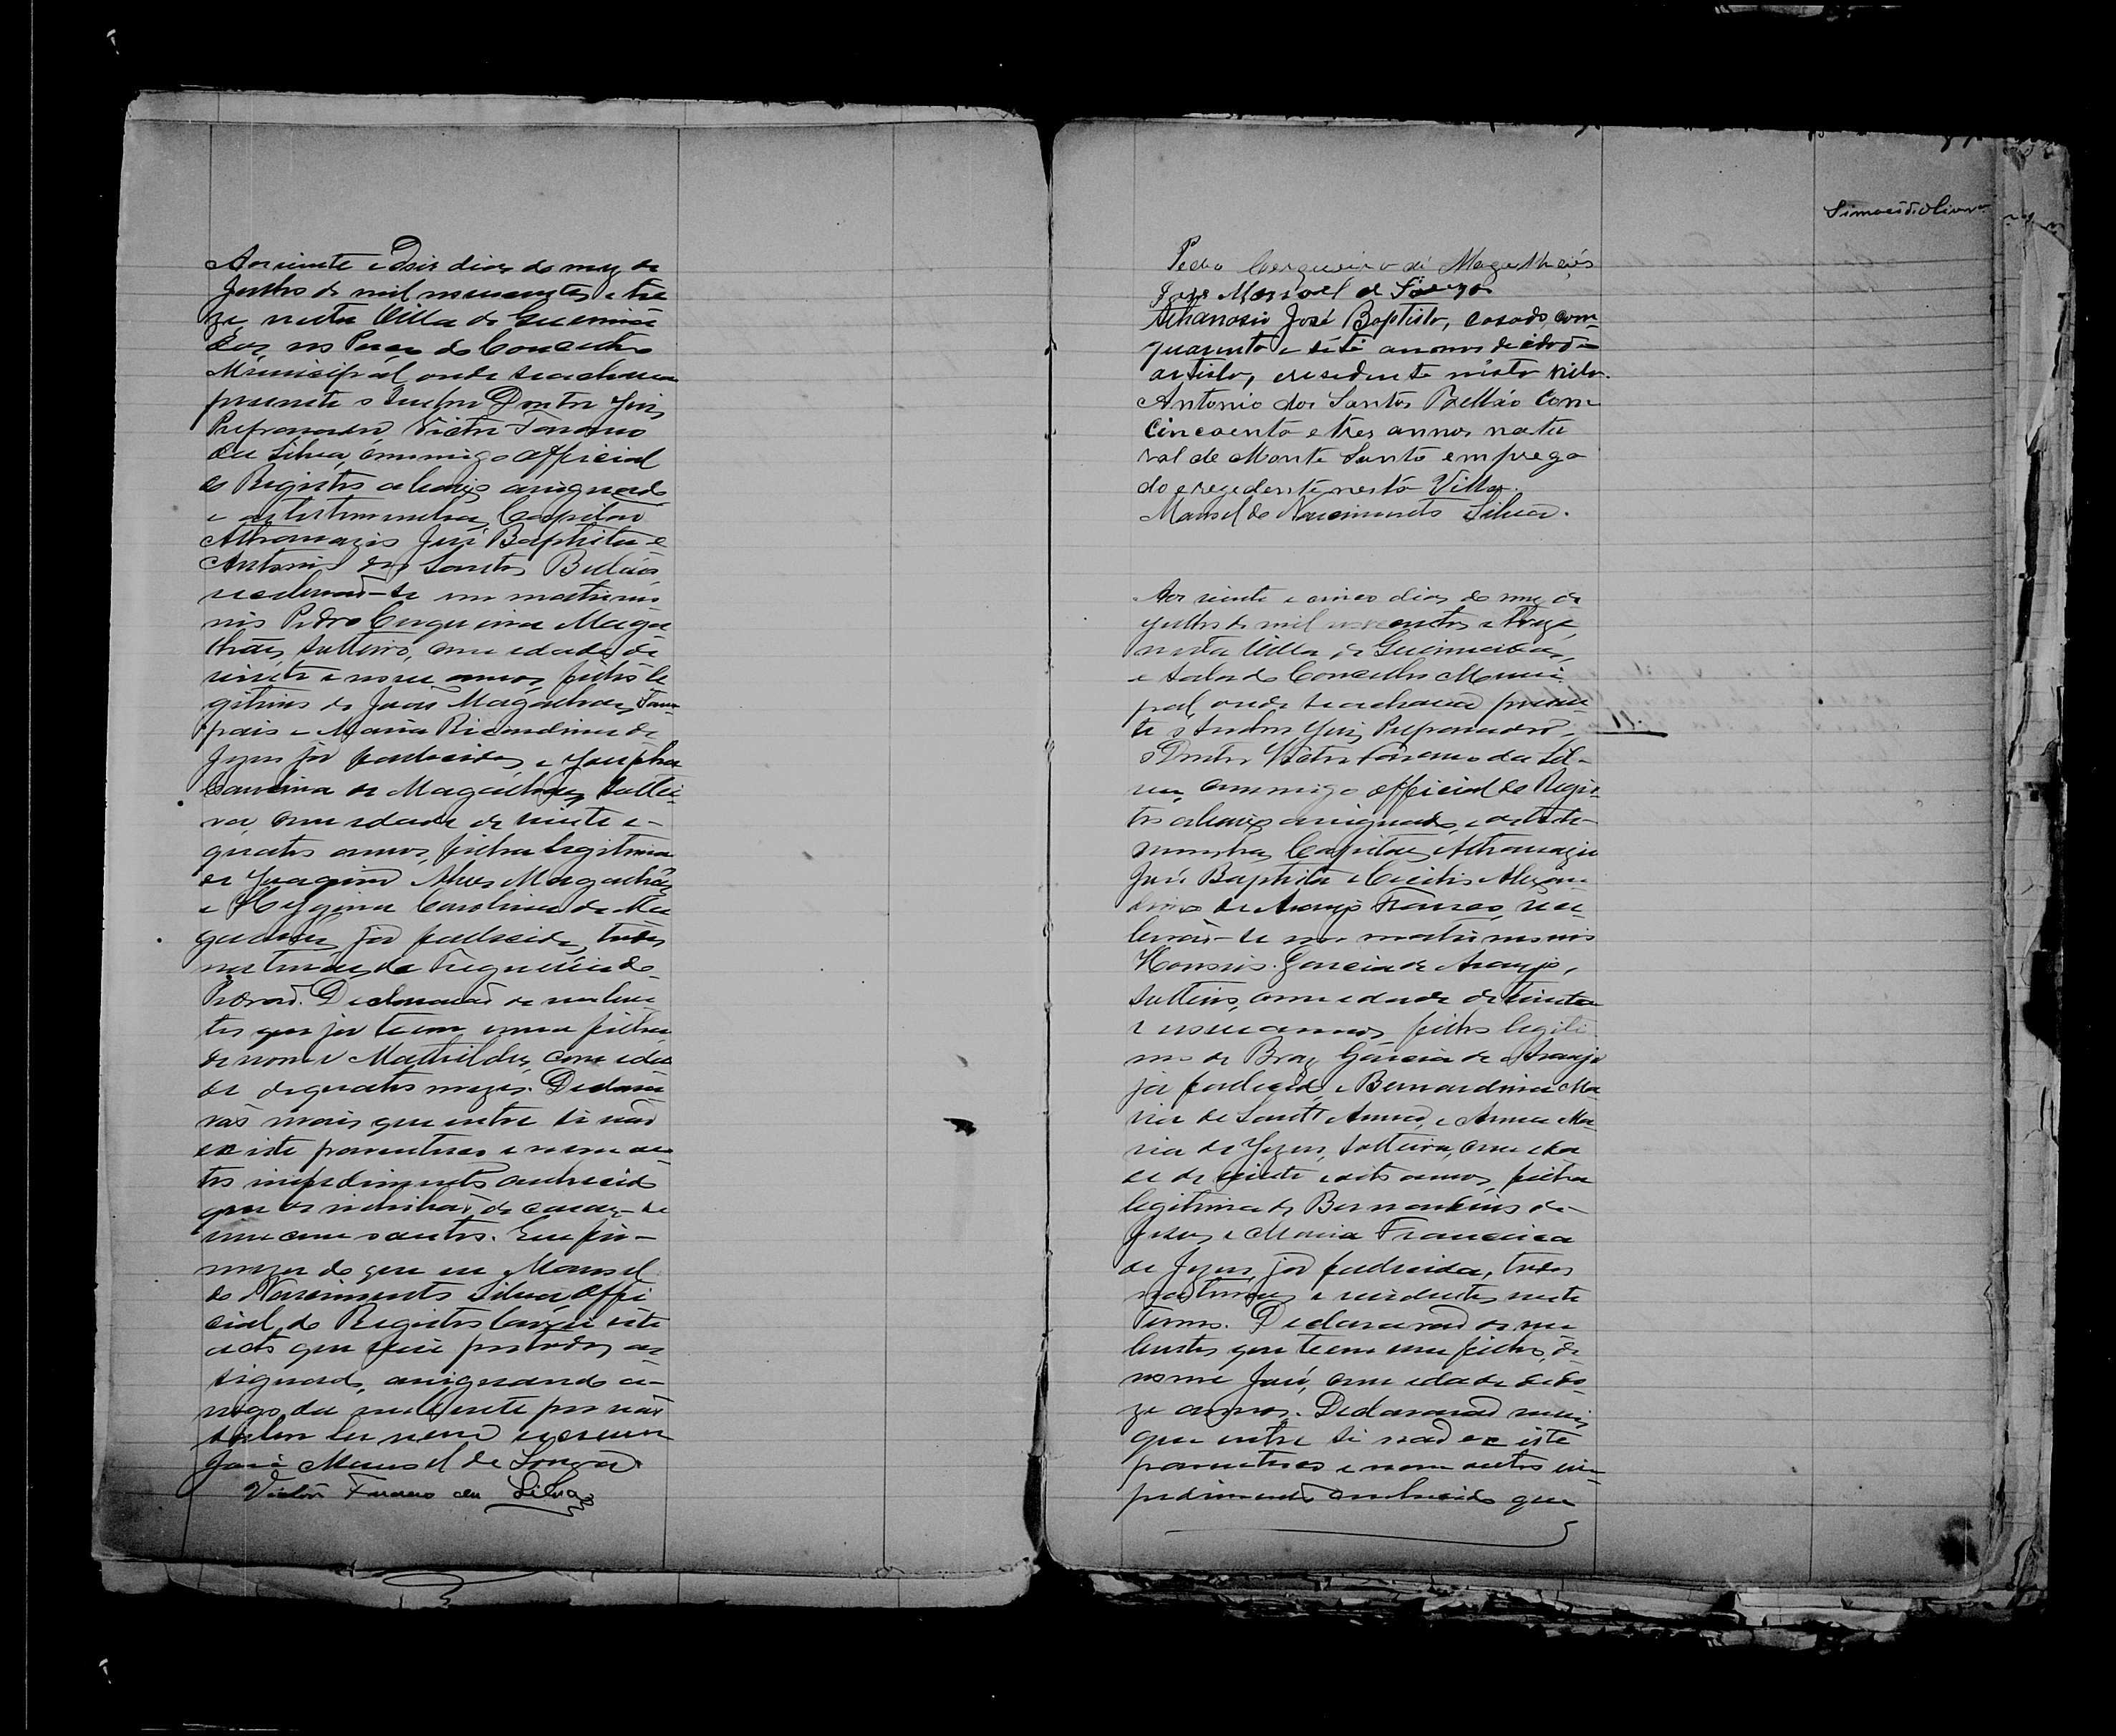 Aos vinte e dois dias do mez de
Julho de mil novecentos e tre
ze, nesta Villa de
no Paço do Conselho
Municipal onde se achava
presente o Senhor Doutor Juiz
Preparador, Victor
da Silva, commigo official
do Registro abaixo assignado
e as testemunhas Capitão
Athanazio José Baptista e
Antonio dos Santos
receberão-se em matrimo
nio Pedro Cerqueira Maga
lhães, solteiro, com edade de
vinte e nove annos, filho le
gitimo de João Magalhães
e Maria Ricardina de
Jezus já fallecidos, e Josepha
Carolina de Magalhães, soltei
ra, com edade de vinte e
quatro annos, filha legitima
de Joaquim Alves Magalhães
e Hygina Carolina de Ma
já fallecida, todos
naturaes da Freguezia do
Declararão os nuben
tes que já teem uma filha
de nome Mathildes, com eda
de de quatro mezes. Declara
rão mais que entre si não
existe parentesco e nem ou
tro impedimento conhecido
que os inhibão de casar-se
um com o outro. Em fir
meza do que eu Manoel
do Nascimento Silva, offi
cial do Registro lavrei este
acto que vai por todos as
signado, assignando a
rogo da nubente por não
saber ler nem escrever
José Manoel de Souza
Victor da Silva
Simões d'Oliveira
Pedro Cerqueira de Magalhães
José Manoel de Souza
Athanasio José Baptista, casado, com
quarenta e sete annos de edade
artista, e residente nesta villa.
Antonio dos Santos com
Cincoenta e tres annos natu
ral de Monte Santo emprega
do e rezedente nesta Villa.
Manoel do Nascimento Silva.
Aos vinte e cinco dias do mez de
Julho de mil novecentos e treze,
nesta Villa de
e Sala do Conselho Munici
pal onde se achava presen
te o Senhor Juiz Preparador,
o Doutor Victor da Sil-
va, commigo official do Regis-
tro abaixo assignado, e as teste-
munhas Capitão Athanazio
José Baptista e Alexan
de Araujo Franco, rece
berão-se em matrimonio
Honorio Garcia de Araujo,
solteiro, com edade de trinta
e nove annos, filho legiti
mo de Braz Garcia de Araujo
já fallecido, e Bernardina Ma
ria de Sant'Anna, e Anna Ma
ria de Jezus, solteira, com eda
de de vinte e oito annos, filha
legitima de de
Jesus e Maria Francisca
de Jezus, já fallecida, todos
naturaes e residentes neste
Termo. Declararão os nu
bentes que teem um filho, de
nome José, com edade de do
ze annos. Declararão mais
que entre si não existe
parentesco e nem outro im
pedimento conhecido que